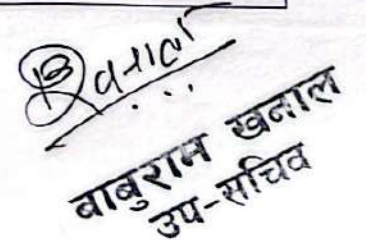 बाबुराम खनाल
उप-सचिव